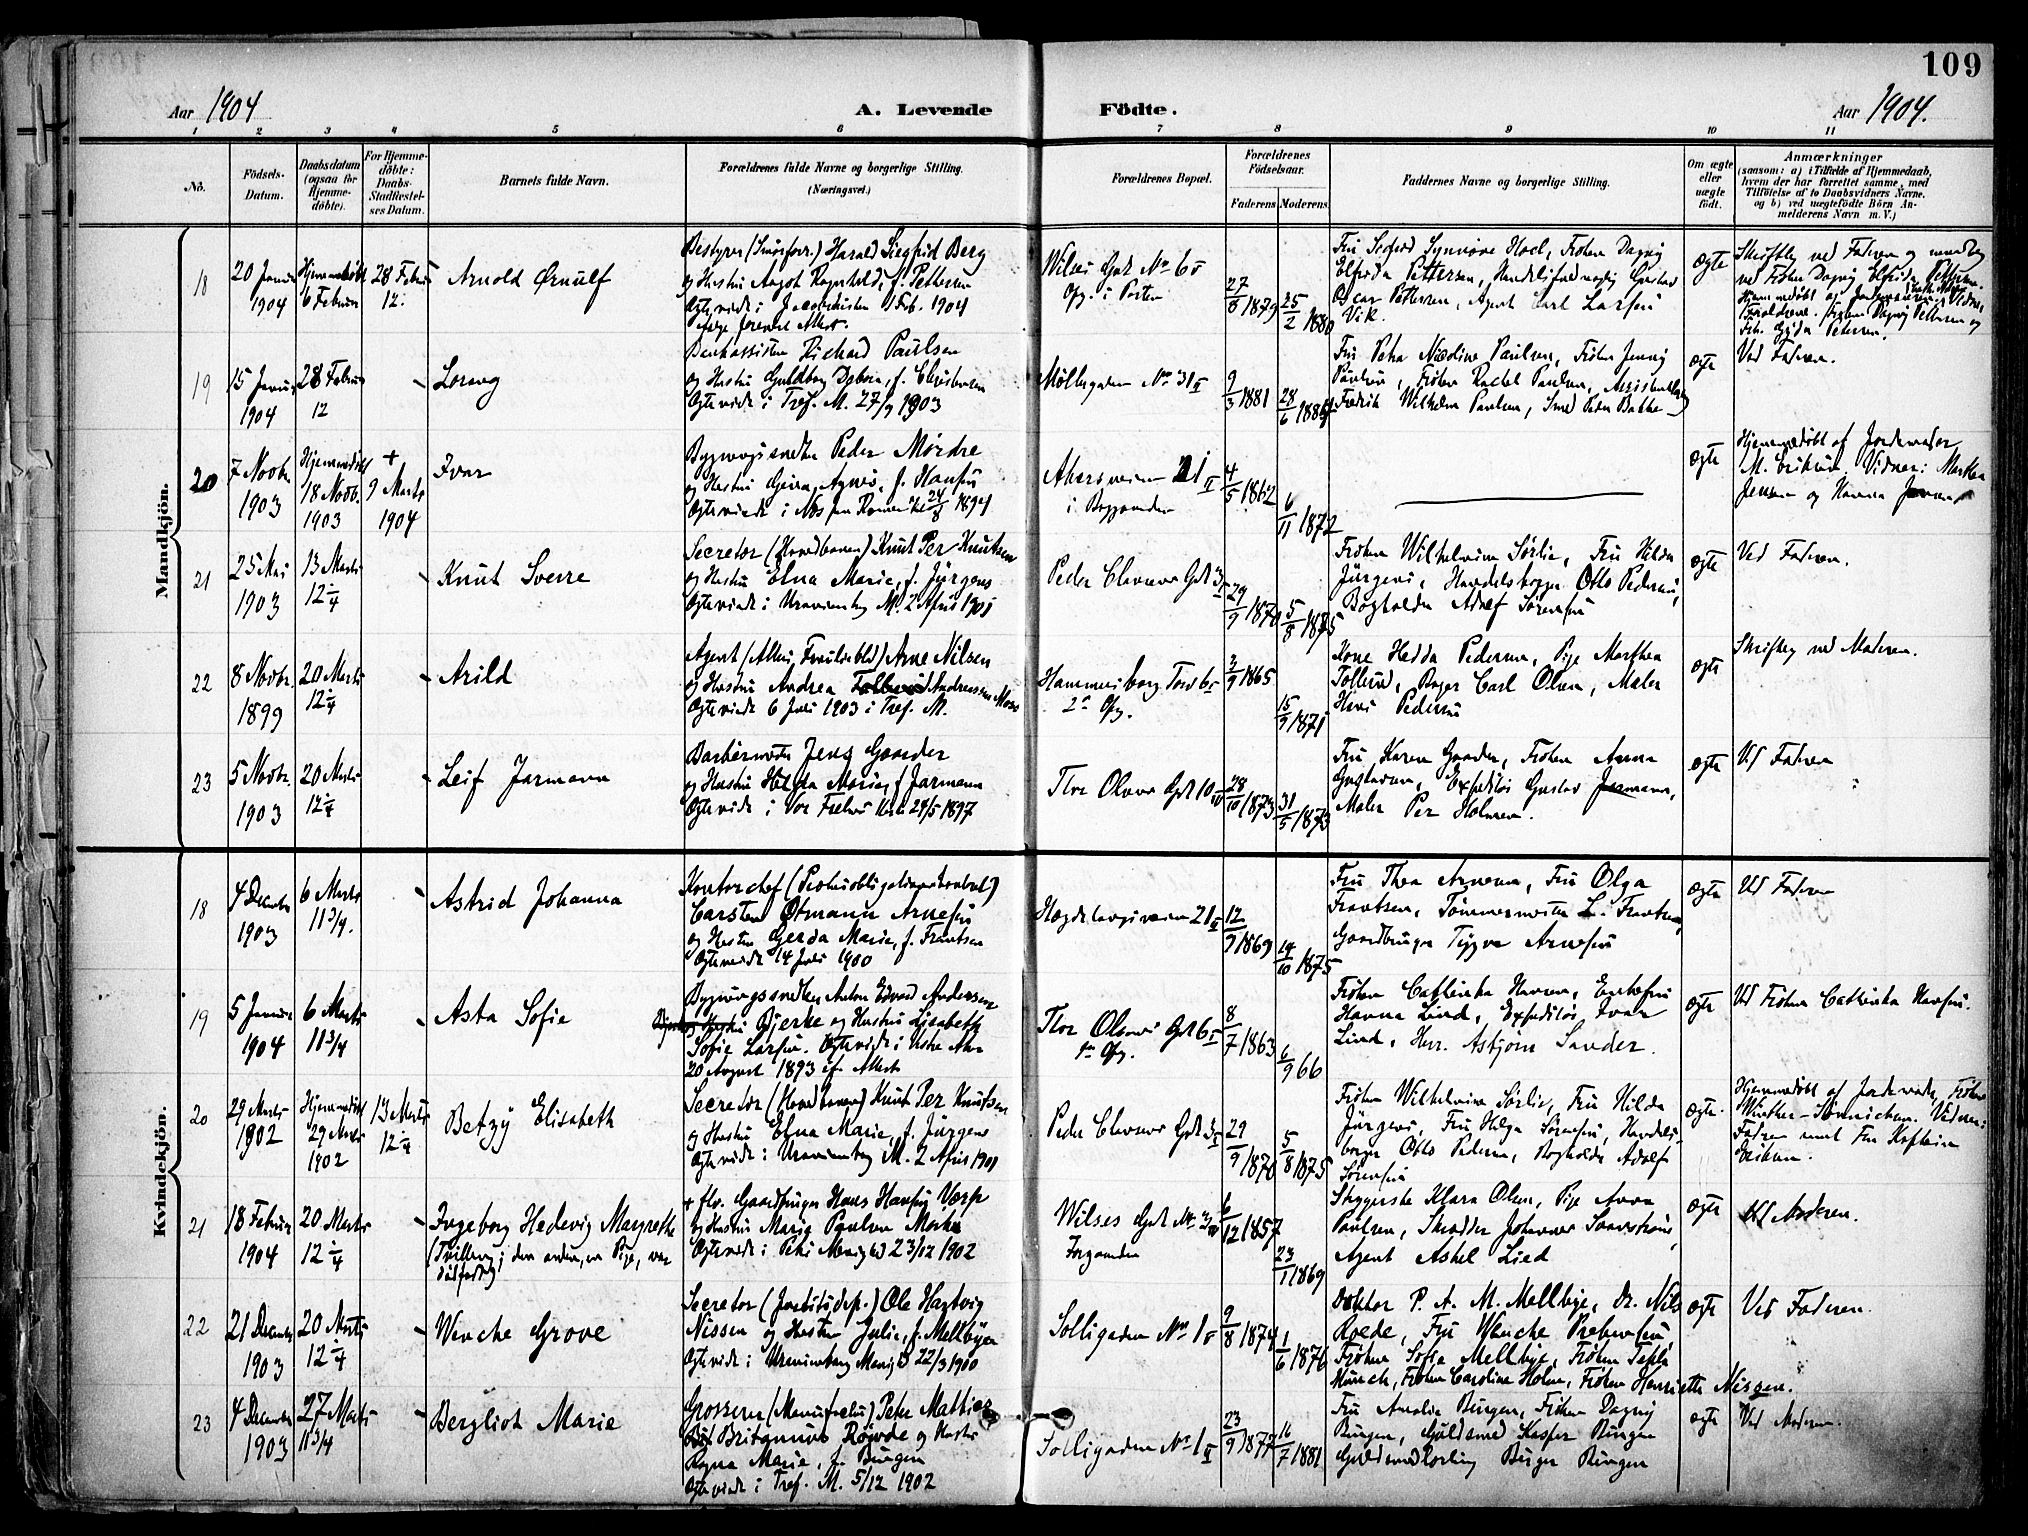 109
Aar 1904
A. Levende
Födte.
Aar 1904.
1 2 3 4 5 6 7 8 9 10 11
No.
Födsels-
Datum.
Daabsdatum
(ogsaa for
Hjemme-
döbte).
For Hjemme-
döbte:
Daabs-
Stadfæstel-
ses Datum.
Barnets fulde Navn.
Forældrenes fulde Navne og borgerlige Stilling.
(Næringsvei.)
Forældrenes Bopæl.
Forældrenes
Födselsaar.
Faderens
Moderens
Faddernes Navne og borgerlige Stilling.
Om ægte
eller
uægte
födt.
Anmærkninger
(saasom: a) i Tilfælde af Hjemmedaab,
hvem der har forrettet samme, med
Tilföielse af to Daabsvidners Navne,
og b) ved uægtefödte Börn An-
melderens Navn m. V.)
Mandkjön.
18
20 Januar
1904
Hjemmedöbt
6 Februar
28 Februar
12
Arnold Ørnulf
Bestyrer Harald Siegfrid Berg
og Hustru Aagot Ragnhild, f. Pettersen
Ægteviede i Jacobskirken Feb. 1904
ifølge forevist Attest.
Wilses Gd No 6
Opg. i Porten
27/8 1879
25/2 1880
Fru Synnöve Hoel, Fröken Dagny
Elfrida Pettersen, Gustav
Oscar Pettersen, Agent Carl Larsen
Vik.
ægte
Skriftlig ved Faderen og mundtlig
ved Fröken Dagny Elfrida Pettersen.
Hjemmedöbt af Jordemoderen
Forældrene, Fröken Dagny Pettersen og
Gyda Petersen.
19
15 Januar
1904
28 Februar
12
Bankassistent Richard Paulsen
og Hustru Guldborg
Ægteviede i Tref. M. 27/9 1903
Möllegaden No 31 II
9/3 1881
28/6 1884
Fru Petra Nicoline Paulsen, Fröken Jenny
Paulsen, Fröken Rachel Paulsen,
Fredrik Wilhelm Paulsen, Smed Peder Bakke
ægte
Ved Faderen.
20
7 Novbr.
1903
Hjemmedöbt
18 Novbr.
1903
+
9 Marts
1904
Ivar
Bygningssnedker Peder Mørdre
og Hustru Agnes, f. Hansen
Ægteviede i Næs paa Romerike 24/8 1894
Akersveien 21 II
i Baggaarden
4/5 1862
6/11 1872
ægte
Hjemmedöbt af Jordemoder
M. Eriksen. Vidner: Marthe
Jensen og Hanna
21
25 Mai
1903
13 Marts
12 1/4
Knut Sverre
Secretær (Havnebanen) Knut Per Knutsen
og Hustru Elna Marie, f. Jürgens
Ægteviede i Uranienborg M. 2 April 1901
Peder Clavsens Gd 3
29/9 1870
5/8 1875
Fröken Wilhelmine Sørlie, Fru Hilda
Jürgens, Handelsborger Otto Pedersen,
Bogholder Adolf Sørensen
ægte
Ved Faderen.
22
8 Novbr.
1899
20 Marts
12 1/4
Arild
Agent Arne Nilsen
og Hustru Andrea Andreassen
Ægteviede 6 Juli 1903 i Tref. M.
Hammersborg Torv 6
2 Opg.
3/9 1865
15/9 1871
Kone Hedda Pedersen, Pige Marthea
Tollerud, Bager Carl Olsen, Maler
Pedersen
ægte
Skriftlig ved Moderen.
23
5 Novbr.
1903
20 Marts
12 1/4
Leif Jarmann
Barbermester Jens Gaarder
og Hustru Hilda Marie, f. Jarmann
Ægteviede i Vor Frelsers Kirke 29/5 1897
Thor Olsens Gd 10
28/10 1873
31/5 1873
Fru Karen Gaarder, Fröken Anna
Gustavsen, Expeditör Gustav Jarmann,
Maler Per Holmsen.
ægte
Ved Faderen
Kvindekjön.
18
4 December
1903
6 Marts
11 3/4
Astrid Johanna
Kontorchef
Carsten Otmann Arnesen
og Hustru Gerda Marie, f. Frantsen
Ægteviede 14 Juli 1900
Hægdehaugsveien 21 II
12/9 1869
14/10 1875
Fru Thea Arnesen, Fru Olga
Frantsen, Tömmermester L. Frantsen,
Gaardbruger Trygve Arnesen
ægte
Ved Faderen
19
5 Januar
1904
6 Marts
11 3/4
Asta Sofie
Bygningssnedker Anton Edvard Andersen
Bjerke og Hustru Lisabeth
Sofie Larsen. Ægteviede i Vestre Aker
20 August 1893 if. Attest
Thor Olsens Gd 6
1ste Opg.
8/7 1863
6/9 66
Fröken Cathinka Hansen,
Hanna Lind, Expeditör Ivar
Lind, Herr Asbjörn Sander.
ægte
Ved Fröken Cathinka Hansen.
20
29 Marts
1902
Hjemmedöbt
29 Marts
1902
13 Marts
12 1/4
Betzy Elisabeth
Secretær (Havnebanen) Knut Per Knutsen
og Hustru Elna Marie, f. Jürgens
Ægteviede i Uranienborg M. 2 April 1901
Peder Clavsens Gd 3
29/9 1870
5/8 1875
Fröken Wilhelmine Sørlie, Fru Hilda
Jürgens, Fru Helga Sørensen, Handels-
borger Otto Pedersen, Bogholder Adolf
Sørensen
ægte
Hjemmedöbt af Jordemoder, Fröken
Winther-Sönnichsen. Vidner:
Faderen samt Fru
Eriksen.
21
18 Februar
1904
20 Marts
12 1/4
Ingeborg Hedevig Margrethe
(Tvilling; den anden, en Pige, var
dödfödt)
+ fhv. Gaardbruger Hans Hansen
og Hustru Marie Pauline
Ægteviede i Petri Menighed 23/12 1902
Wilses Gd No 3
Forgaarden
6/12 1857
23/1 1869
Klara Olsen, Pige Anna
Paulsen, Skrædder Johannes
Agent Askel Lied
ægte
Ved Moderen.
22
21 December
1903
20 Marts
12 1/4
Wenche Grove
Secretær (Justitsdep.) Ole Hartvig
Nissen og Hustru Julie, f. Mellbye
Ægteviede i Uranienborg Menighed 22/3 1900
Solligaden No 1
9/8 1874
1/6 1876
Doktor P. A. M. Mellbye, Dr. Nils
Roede, Fru Wenche Prebensen
Fröken Sofie Mellbye, Fröken Thekla
Munch, Fröken Caroline Holm, Fröken Henriette Nissen.
ægte
Ved Faderen.
23
4 December
1903
27 Marts
11 3/4
Bergliot Marie
Grosserer (Manufactur) Peter Mathias
Britannus Röwde og Hustru
Ragna Marie, f. Bungen
Ægteviede i Tref. M. 5/12 1902
Solligaden No 1 II
23/9 1877
16/7 1881
Fru Amalie Bungen, Fröken Dagny
Bungen, Guldsmed Kasper Bungen
Guldsmedlærling Birger Bungen
ægte
Ved Moderen.